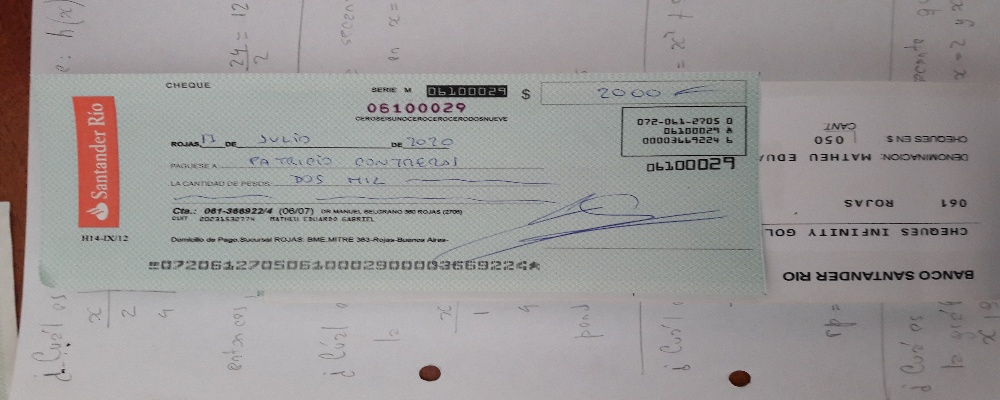 CHEQUE
SERIE M 06100029 $ 2000
06100029
CEROSEISUNOCEROCEROCERODOSNUEVE
072-061-2705 0
06100029 A
00003669224 6
06100029
ROJAS, 17 DE JULIO DE 2020
PAGUESE A PATRICIO CONTRERAS
LA CANTIDAD DE PESOS DOS MIL
Santander Río
Cta.: 061-366922/4 (06/07) DR MANUEL BELGRANO 360 ROJAS (2705)
CUIT 20231530774 MATHEU EDUARDO GABRIEL
H14-IX/12
Domicilio de Pago.Sucursal ROJAS. BME.MITRE 383-Rojas-Buenos Aires-
07206127050610002900003669224
BANCO SANTANDER RIO
CHEQUES INFINITY GOL
061 ROJAS
DENOMINACION: MATHEU EDUA
CHEQUES EN $ CANT 050
e: h(x)
24 = 12
2
en x =
= x² +
x y 2 = x
¿ Cuál os
x
2
4
entonces
¿ Cuál
la
x
1
4
para
¿ Cuál
¿ Cuál os
la
x